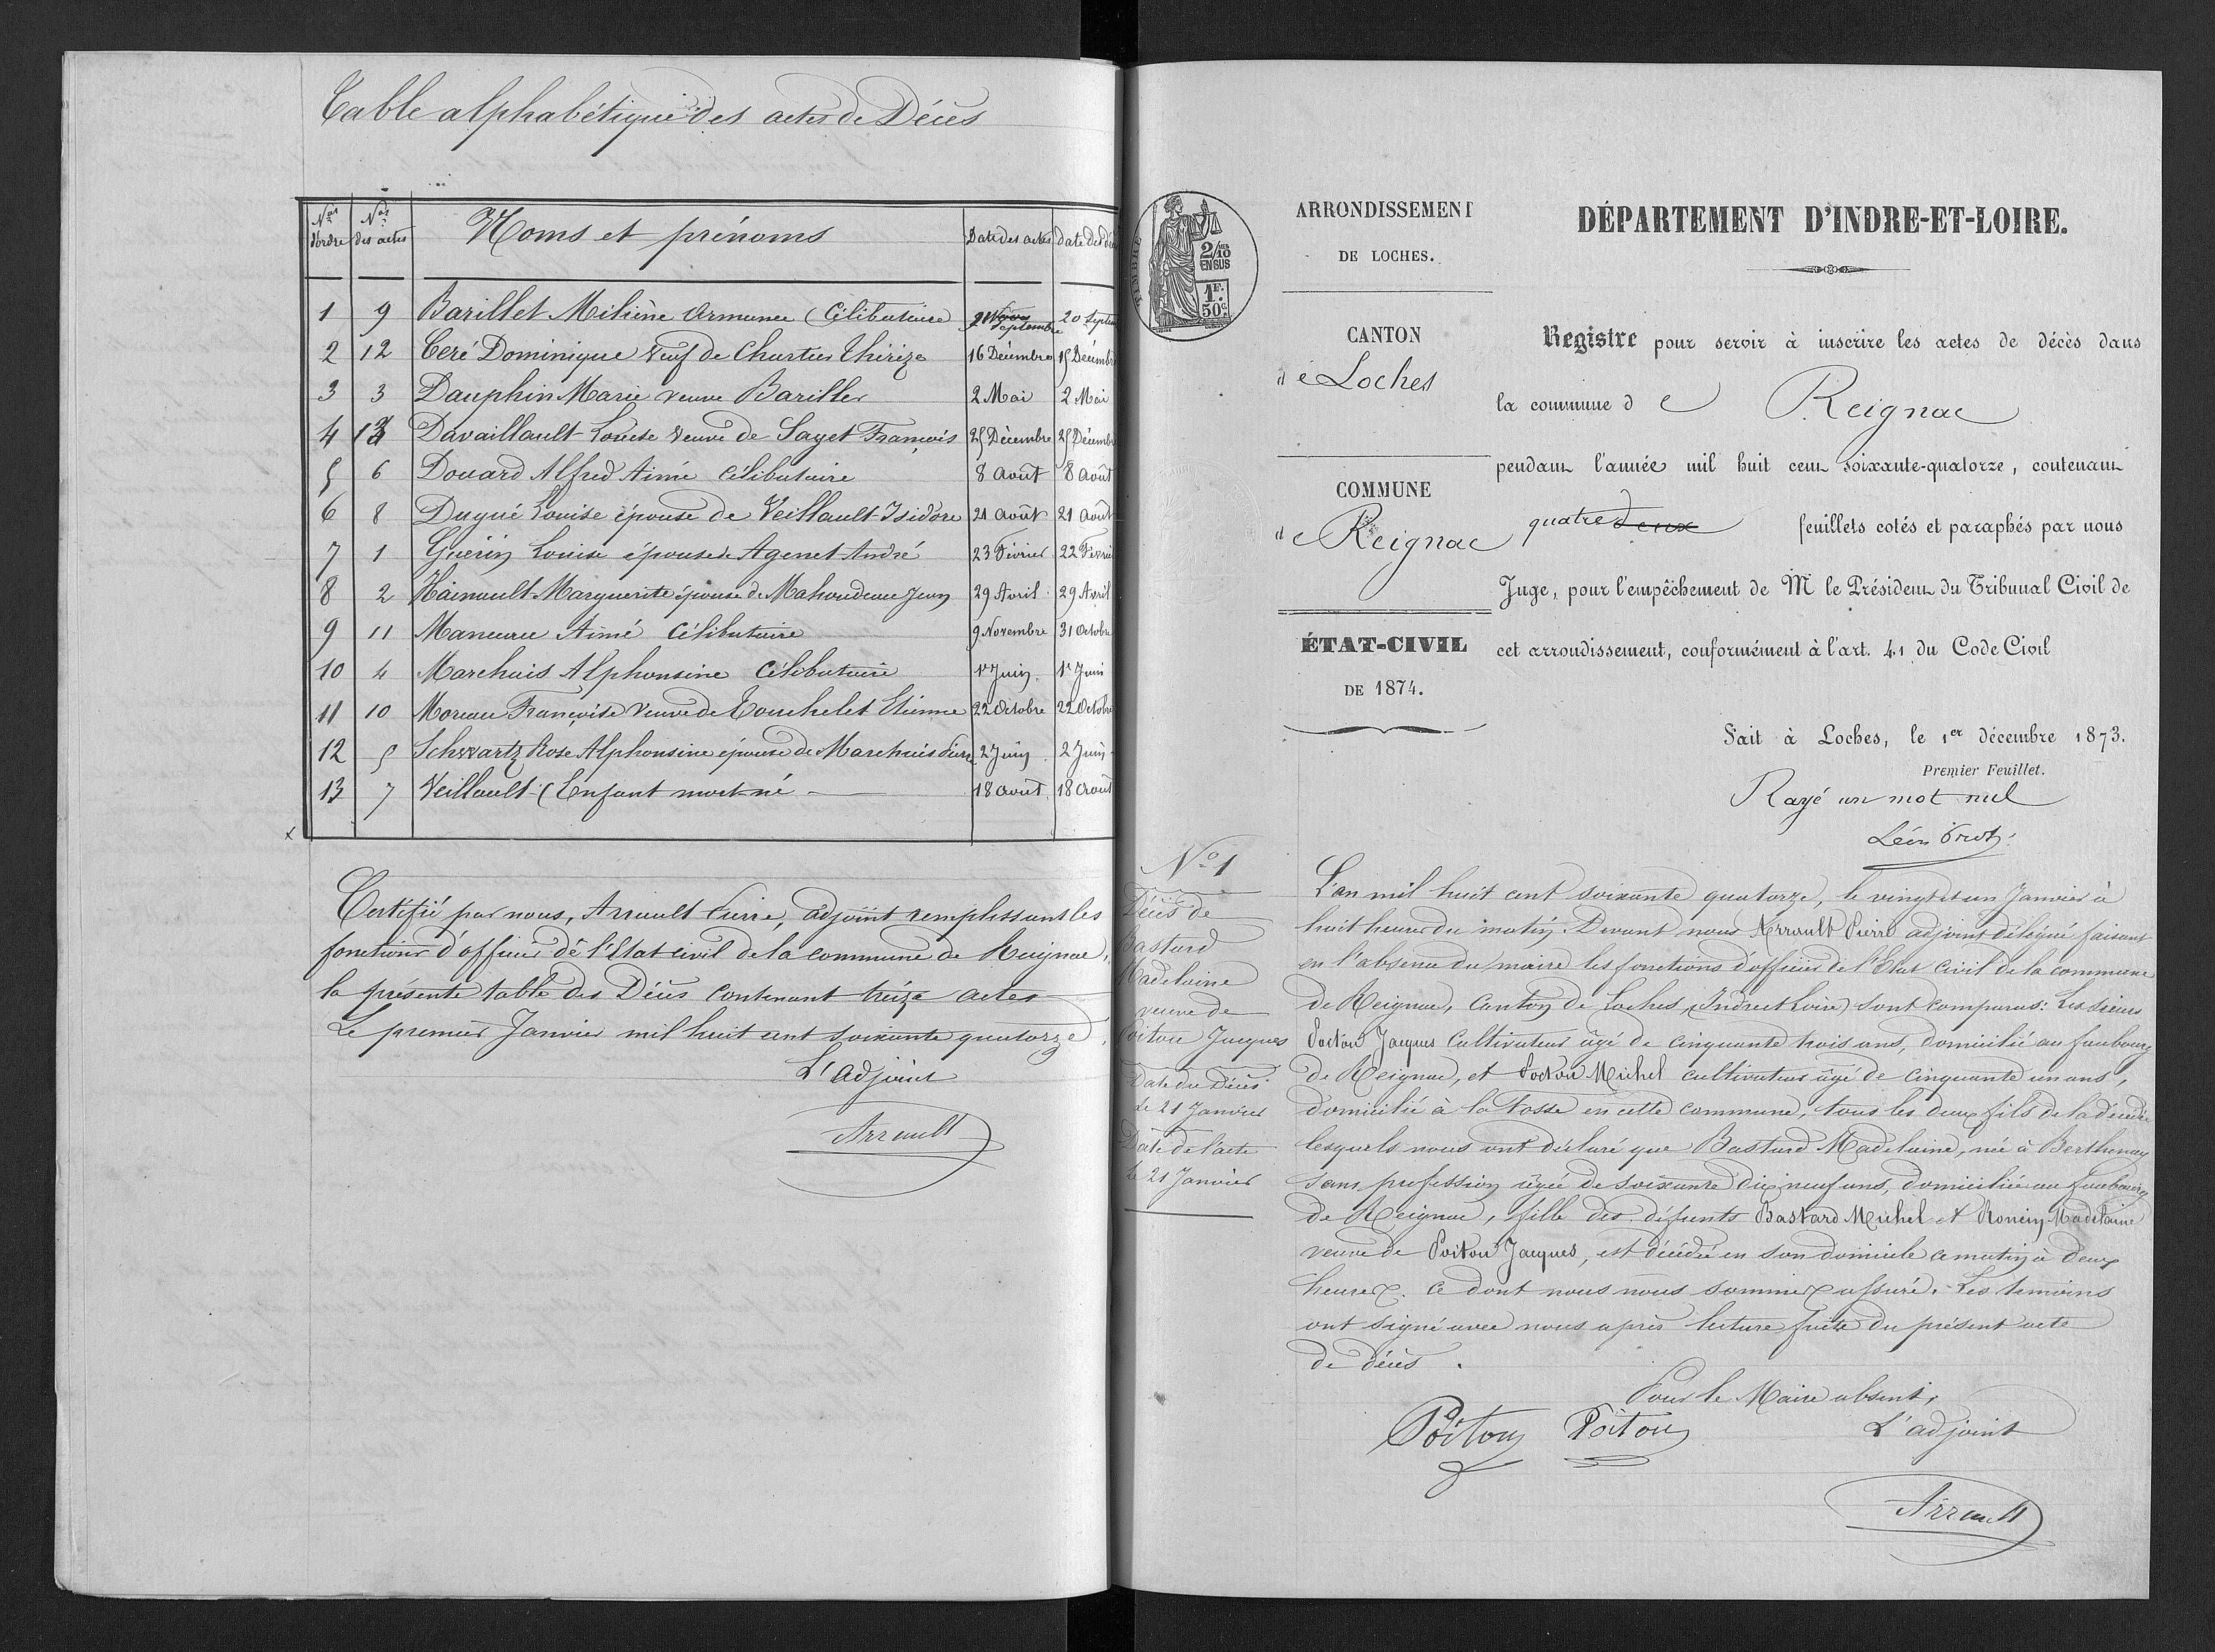 Table alphabétique des actes de Décès
Nos d'ordre Nos des actes Noms et prénoms Date des actes Date des
1 9 Barillet Armance Célibataire 21 Septembre 20
2 12 Ceré Dominique Veuf de Thérèze 16 Décembre 15
3 3 Dauphin Marie veuve Bariller 2 Mai 2 Mai
4 13 Davaillault Louise Veuve de Sayet François 25 Décembre 25
5 6 Douard Alfred Aimé célibataire 8 Août 8 Août
6 8 Dugué Louise épouse de Veillault Isidore 21 Août 21 Août
7 1 Guérin Louise épouse de Agenet André 23 Février 22
8 2 Hainault Marguerite épouse de Mahoudeau Jean 29 Avril 29 Avril
9 11 Manceau Aimé Célibataire 9 Novembre 31 Octobre
10 4 Marchais Alphonsine Célibataire 1er Juin 1er Juin
11 10 Moreau Françoise Veuve de Etienne 22 Octobre 22 Octobre
12 5 Schwartz Rose Alphonsine épouse de Marchais Pierre 2 Juin 2 Juin
13 7 Veillault (Enfant mort-né 18 Août 18 Août
Certifié par nous, Arrault Pierre, adjoint remplissant les
fonctions d'officier de l'Etat civil de la commune de Reignac,
la présente table des Décès contenant treize actes
Le premier Janvier mil huit cent soixante quatorze
L'adjoint
Arrault
TIMBRE
2/10 EN SUS
1F. 50c.
ARRONDISSEMENT
DE LOCHES.
CANTON
de Loches
COMMUNE
de Reignac
ÉTAT-CIVIL
DE 1874.
DÉPARTEMENT D'INDRE-ET-LOIRE.
Registre pour servir à inscrire les actes de décès dans
la commune de Reignac
pendant l'année mil huit cent soixante-quatorze, contenant
quatre deux feuillets cotés et paraphés par nous
Juge, pour l'empêchement de M le Président du Tribunal Civil de
cet arrondissement, conformément à l'art. 41 du Code Civil
Fait à Loches, le 1er décembre 1873.
Premier Feuillet.
Rayé un mot nul
N° 1
Décès de
Bastard
Madelaine
veuve de
Poitou Jacques
Date du Décès
Le 21 Janvier
Date de l'acte
le 21 Janvier
L'an mil huit cent soixante quatorze, le vingt et un Janvier à
huit heures du matin. Devant nous Arrault Pierre adjoint délégué faisant
en l'absence du maire les fonctions d'officier de l'Etat Civil de la commune
de Reignac, Canton de Loches (Indre et Loire) sont comparus: Les sieurs
Poitou Jacques Cultivateur âgé de cinquante trois ans, domicilié au faubourg
de Reignac, et Poitou Michel cultivateur âgé de cinquante un ans,
domicilié à la fosse en cette commune, tous les deux fils de la décédée
lesquels nous ont déclaré que Bastard Madelaine, née à Berthenay
sans profession âgée de soixante dix neuf ans, domiciliée au faubourg
de Reignac, fille des défunts Bastard Michel et Madelaine
veuve de Poitou Jacques, est décédée en son domicile ce matin à deux
heures. Ce dont nous nous sommes assuré. Les témoins
ont signé avec nous après lecture faite du présent acte
de décès.
Pour le Maire absent,
L'adjoint
Poitou Poitou
Arrault